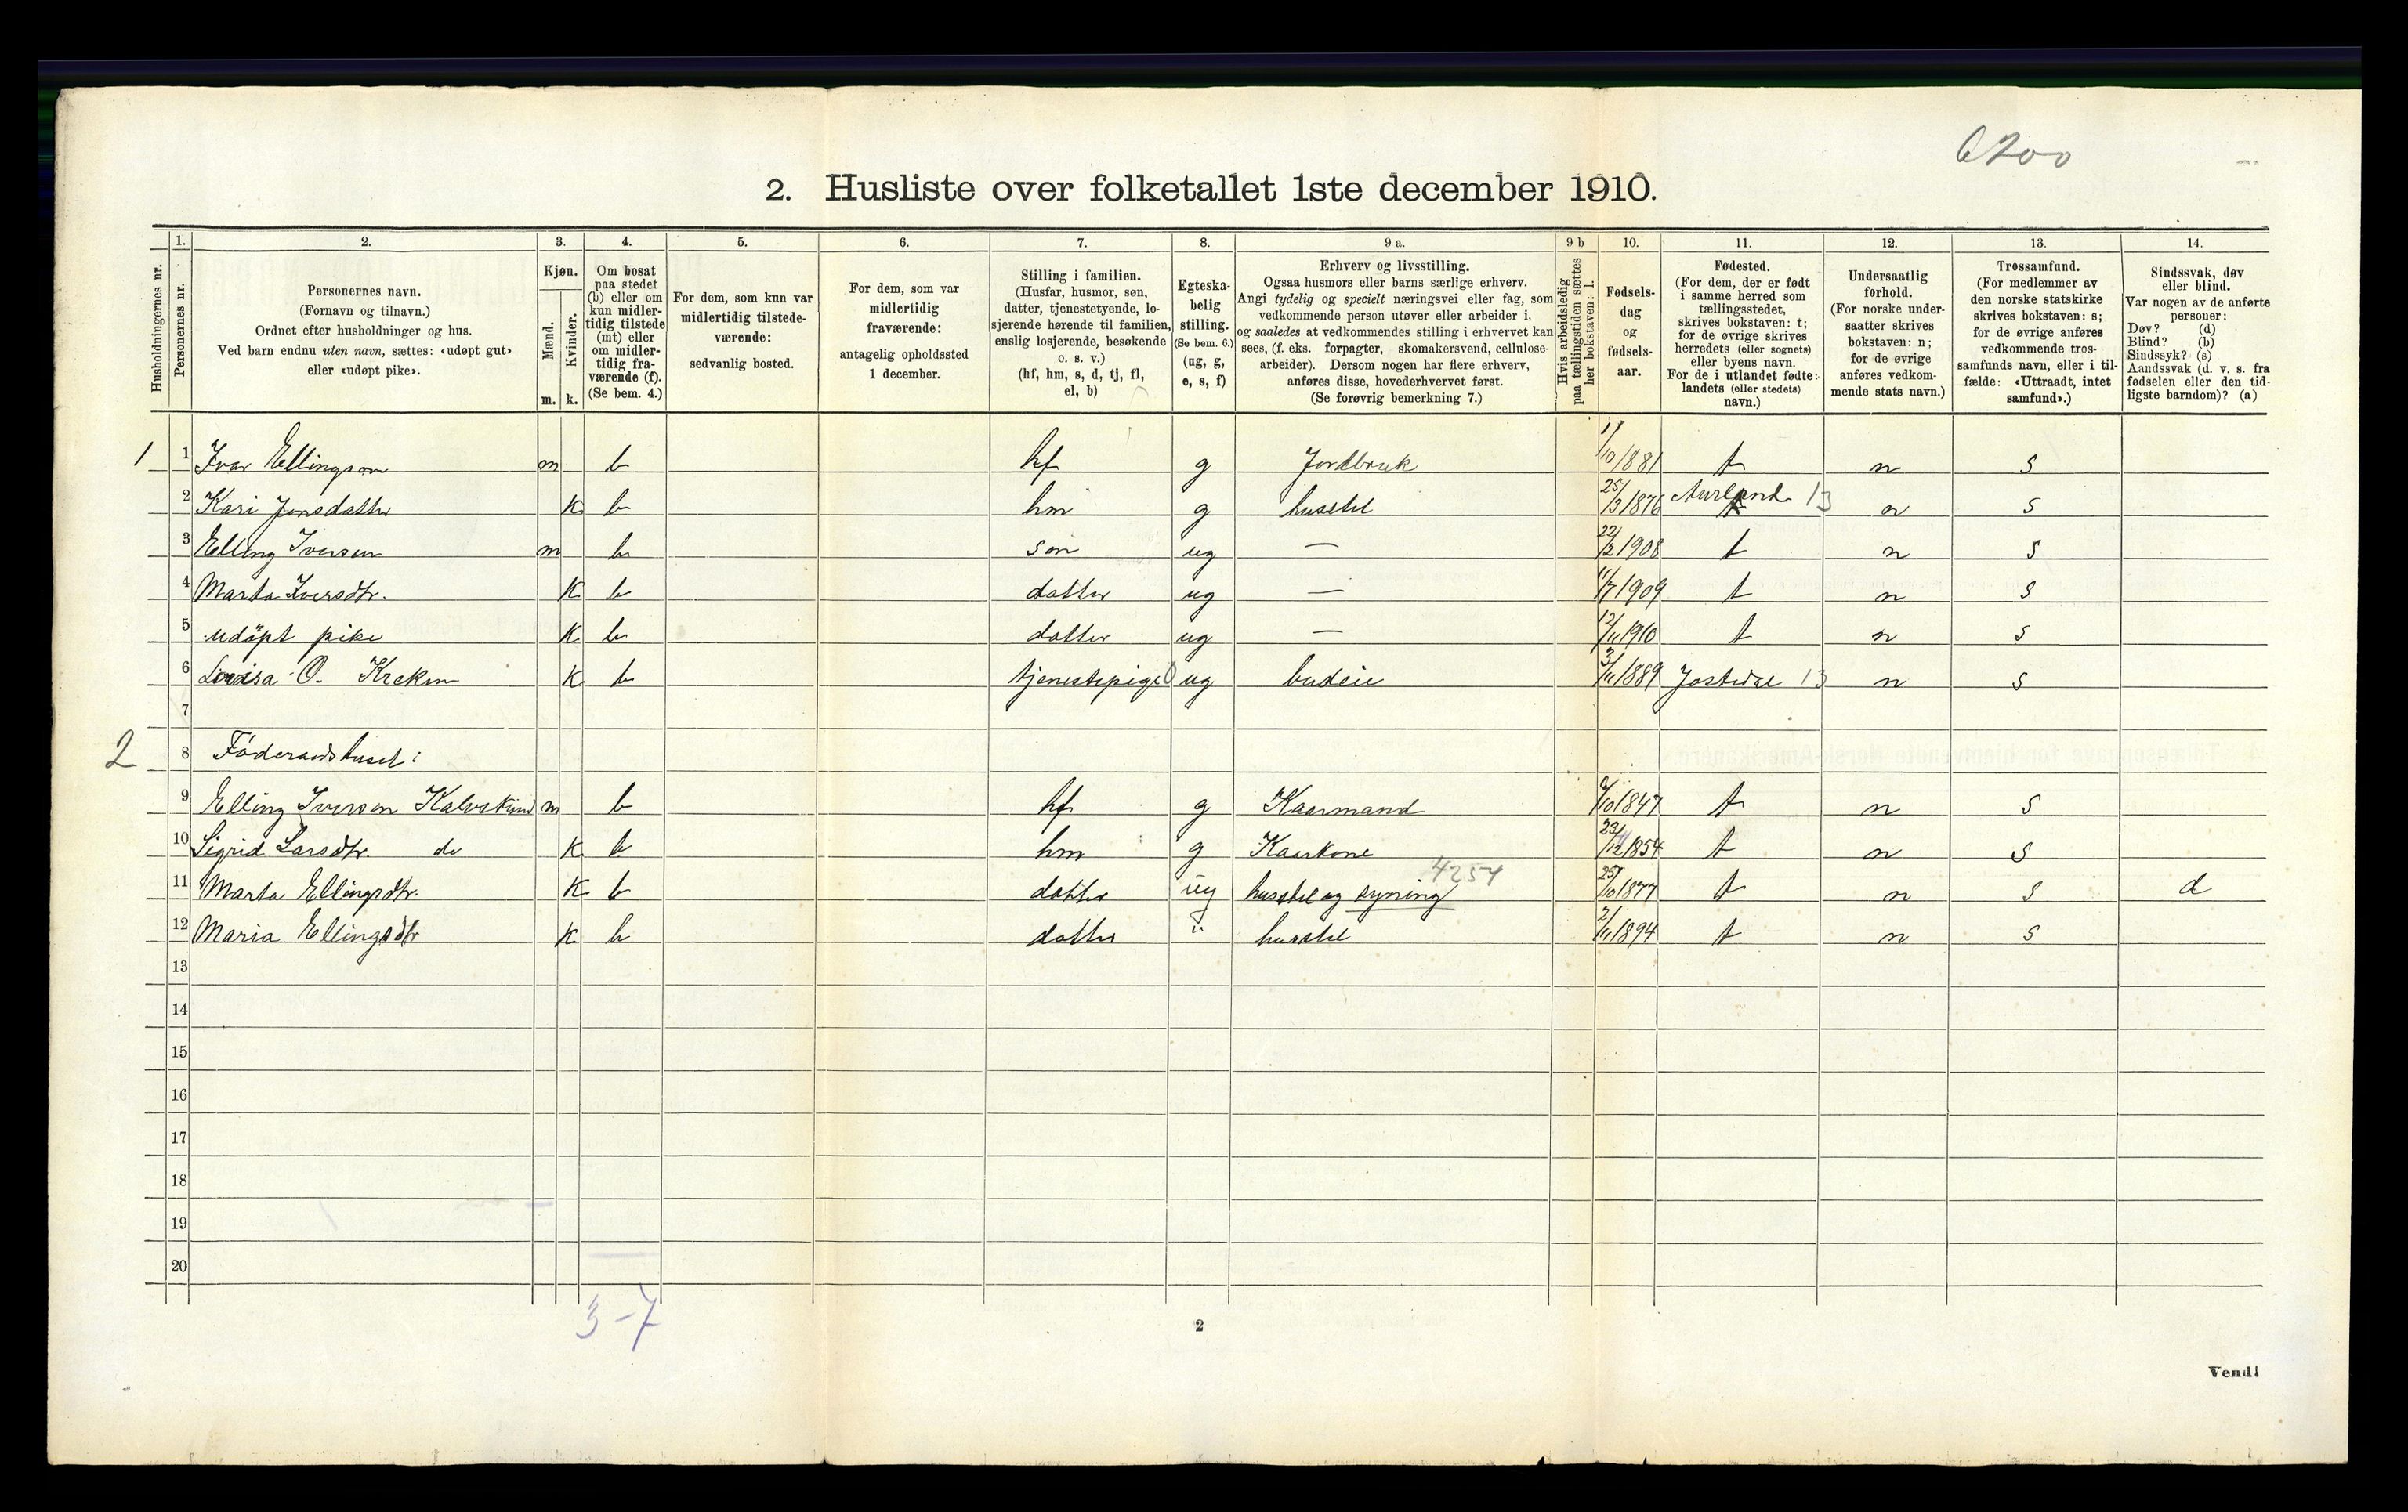 6200
2. Husliste over folketallet 1ste december 1910.
Husholdningernes nr.
1.
Personernes nr.
2.
Personernes navn.
(Fornavn og tilnavn.)
Ordnet efter husholdninger og hus.
Ved barn endnu uten navn, sættes: «udøpt gut»
eller «udøpt pike».
3.
Kjøn.
Mænd.
Kvinder.
m. k.
4.
Om bosat
paa stedet
(b) eller om
kun midler-
tidig tilstede
(mt) eller
om midler-
tidig fra-
værende (f).
(Se bem. 4.)
5.
For dem, som kun var
midlertidig tilstede-
værende:
sedvanlig bosted.
6.
For dem, som var
midlertidig
fraværende:
antagelig opholdssted
1 december.
7.
Stilling i familien.
(Husfar, husmor, søn,
datter, tjenestetyende, lo-
sjerende hørende til familien,
enslig losjerende, besøkende
o. s. v.)
(hf, hm, s, d, tj, fl,
el, b)
8.
Egteska-
belig
stilling.
(Se bem. 6.)
(ug, g,
e, s, f)
9 a.
Erhverv og livsstilling.
Ogsaa husmors eller barns særlige erhverv.
Angi tydelig og specielt næringsvei eller fag, som
vedkommende person utøver eller arbeider i,
og saaledes at vedkommendes stilling i erhvervet kan
sees, (f. eks. forpagter, skomakersvend, cellulose-
arbeider). Dersom nogen har flere erhverv,
anføres disse, hovederhvervet først.
(Se forøvrig bemerkning 7.)
9 b
Hvis arbeidsledig
paa tællingstiden sættes
her bokstaven: l.
10.
Fødsels-
dag
og
fødsels-
aar.
11.
Fødested.
(For dem, der er født
i samme herred som
tællingsstedet,
skrives bokstaven: t;
for de øvrige skrives
herredets (eller sognets)
eller byens navn.
For de i utlandet fødte:
landets (eller stedets)
navn.)
12.
Undersaatlig
forhold.
(For norske under-
saatter skrives
bokstaven: n;
for de øvrige
anføres vedkom-
mende stats navn.)
13.
Trossamfund.
(For medlemmer av
den norske statskirke
skrives bokstaven: s;
for de øvrige anføres
vedkommende tros-
samfunds navn, eller i til-
fælde: «Uttraadt, intet
samfund».)
14.
Sindssvak, døv
eller blind.
Var nogen av de anførte
personer:
Døv? (d)
Blind? (b)
Sindssyk? (s)
Aandssvak (d. v. s. fra
fødselen eller den tid-
ligste barndom)? (a)
1 1 Ivar Ellingson m b hf g Jordbruk /10 1881 t n s
2 Kari Jonsdatter k b hm g husstel 25/3 1876 Aurland 13 n s
3 Elling Iversen m b son ug — 22/2 1908 t n s
4 Marta Iversdtr. k b datter ug — 11/7 1909 t n s
5 udöpt pike k b datter ug — 12/11 1910 t n s
6 Lovisa O. Kreken k b tjenestepige ug budeie 3/11 1889 Jostedal 13 n s
7
2 8 Föderaadshuset:
9 Elling Iversen Kalvskind m b hf g Kaarmand 6/10 1847 t n s
10 Sigrid Larsdtr. do k b hm g Kaarkone 23/12 1854 t n s
11 Marta Ellingsdtr. k b datter ug husstel og syning 4254 25/10 1877 t n s d
12 Maria Ellingsdtr k b datter " husstel 2/11 1894 t n s
13
14
15
16
17
18
19
20
3-7
2
Vend!